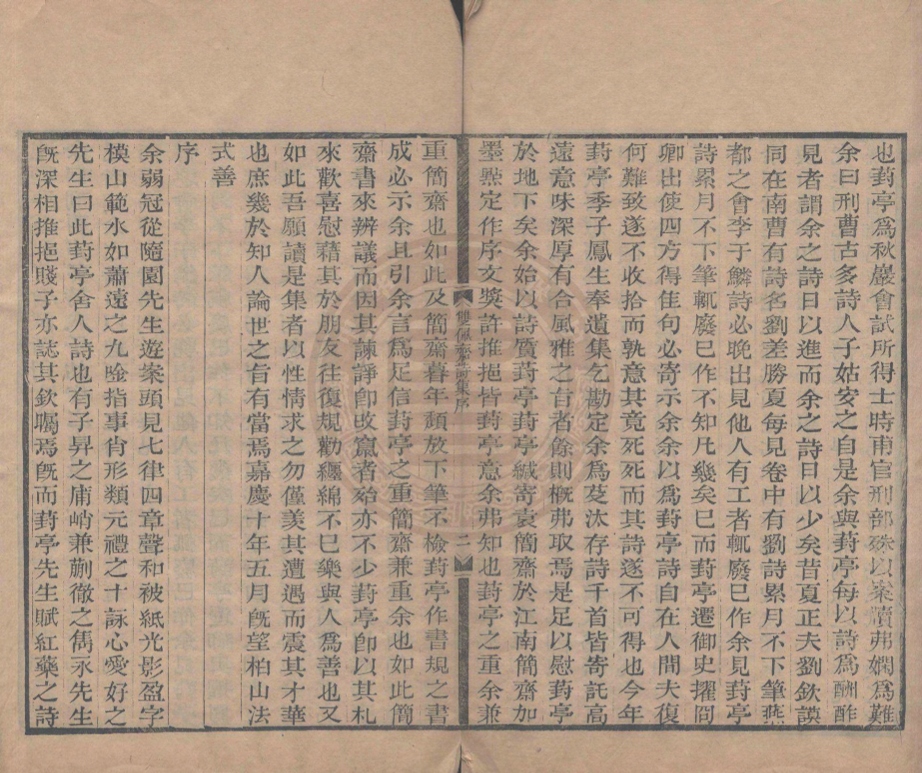 也葑亭為秋巖會試所得士時甫官刑部殊以案牘弗嫻為難
余曰刑曹古多詩人子姑安之自是余與葑亭每以詩為酬酢
見者謂余之詩日以進而余之詩日以少矣昔夏正夫劉欽謨
同在南曹有詩名劉差勝夏每見卷中有劉詩累月不下筆燕
都之會李于鱗詩必晚出見他人有工者輒廢已作余見葑亭
詩累月不下筆輒廢已作不知凡幾矣已而葑亭遷御史擢冏
卿出使四方得佳句必寄示余余以為葑亭詩自在人間夫復
何難致遂不收拾而孰意其竟死死而其詩遂不可得也今年
葑亭季子鳳生奉遺集乞勘定余為芟汰存詩千首皆寄託高
遠意味深厚有合風雅之旨者餘則概弗取焉是足以慰葑亭
於地下矣余始以詩質葑亭葑亭緘寄袁簡齋於江南簡齋加
墨㸃定作序文獎許推挹皆葑亭意余弗知也葑亭之重余兼
雙佩齋詩集序
二
重簡齋也如此及簡齋暮年頹放下筆不檢葑亭作書規之書
成必示余且引余言為足信葑亭之重簡齋兼重余也如此簡
齋書來辨議而因其諫諍卽改竄者殆亦不少葑亭卽以其札
來歡喜慰藉其於朋友往復規勸纏綿不已樂與人為善也又
如此吾願讀是集者以性情求之勿僅羨其遭遇而震其才華
也庶幾於知人論世之旨有當焉嘉慶十年五月旣望柏山法
式善
序
余弱冠從隨園先生遊案頭見七律四章聲和被紙光影盈字
模山範水如蕭遠之九唫指事肖形類元禮之十詠心愛好之
先生曰此葑亭舍人詩也有子昇之庯峭兼蒯徹之雋永先生
旣深相推挹賤子亦誌其欽矚焉旣而葑亭先生賦紅藥之詩